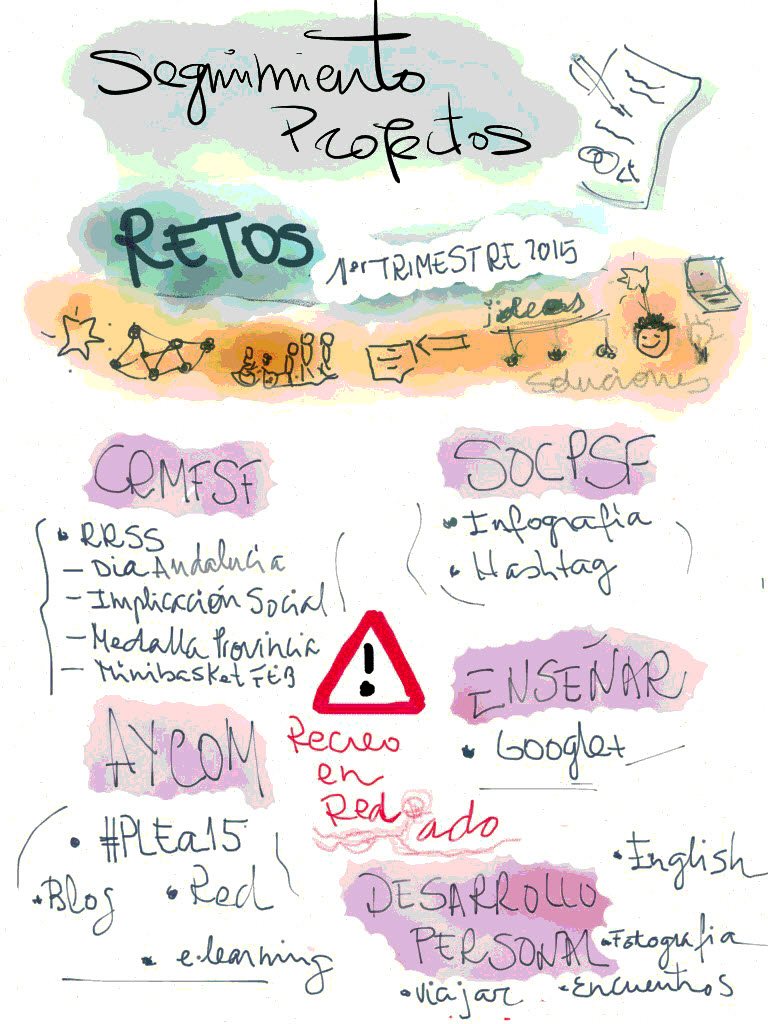 Seguimiento
Proyectos
RETOS
1er TRIMESTRE 2015
ideas
soluciones
CRMFSF
• RRSS
— Dia Andalucia
— Implicación Social
— Medalla Provincia
— Minibasket FEB
SOCPSF
• Infografia
• Hashtag
ENSEÑAR
• Google+
AYCOM
• #PLEa15
• Blog
• Red
• e-learning
!
Recreo
en
Red@ado
DESARROLLO
PERSONAL
• English
• Fotografia
• Viajar
• Encuentros